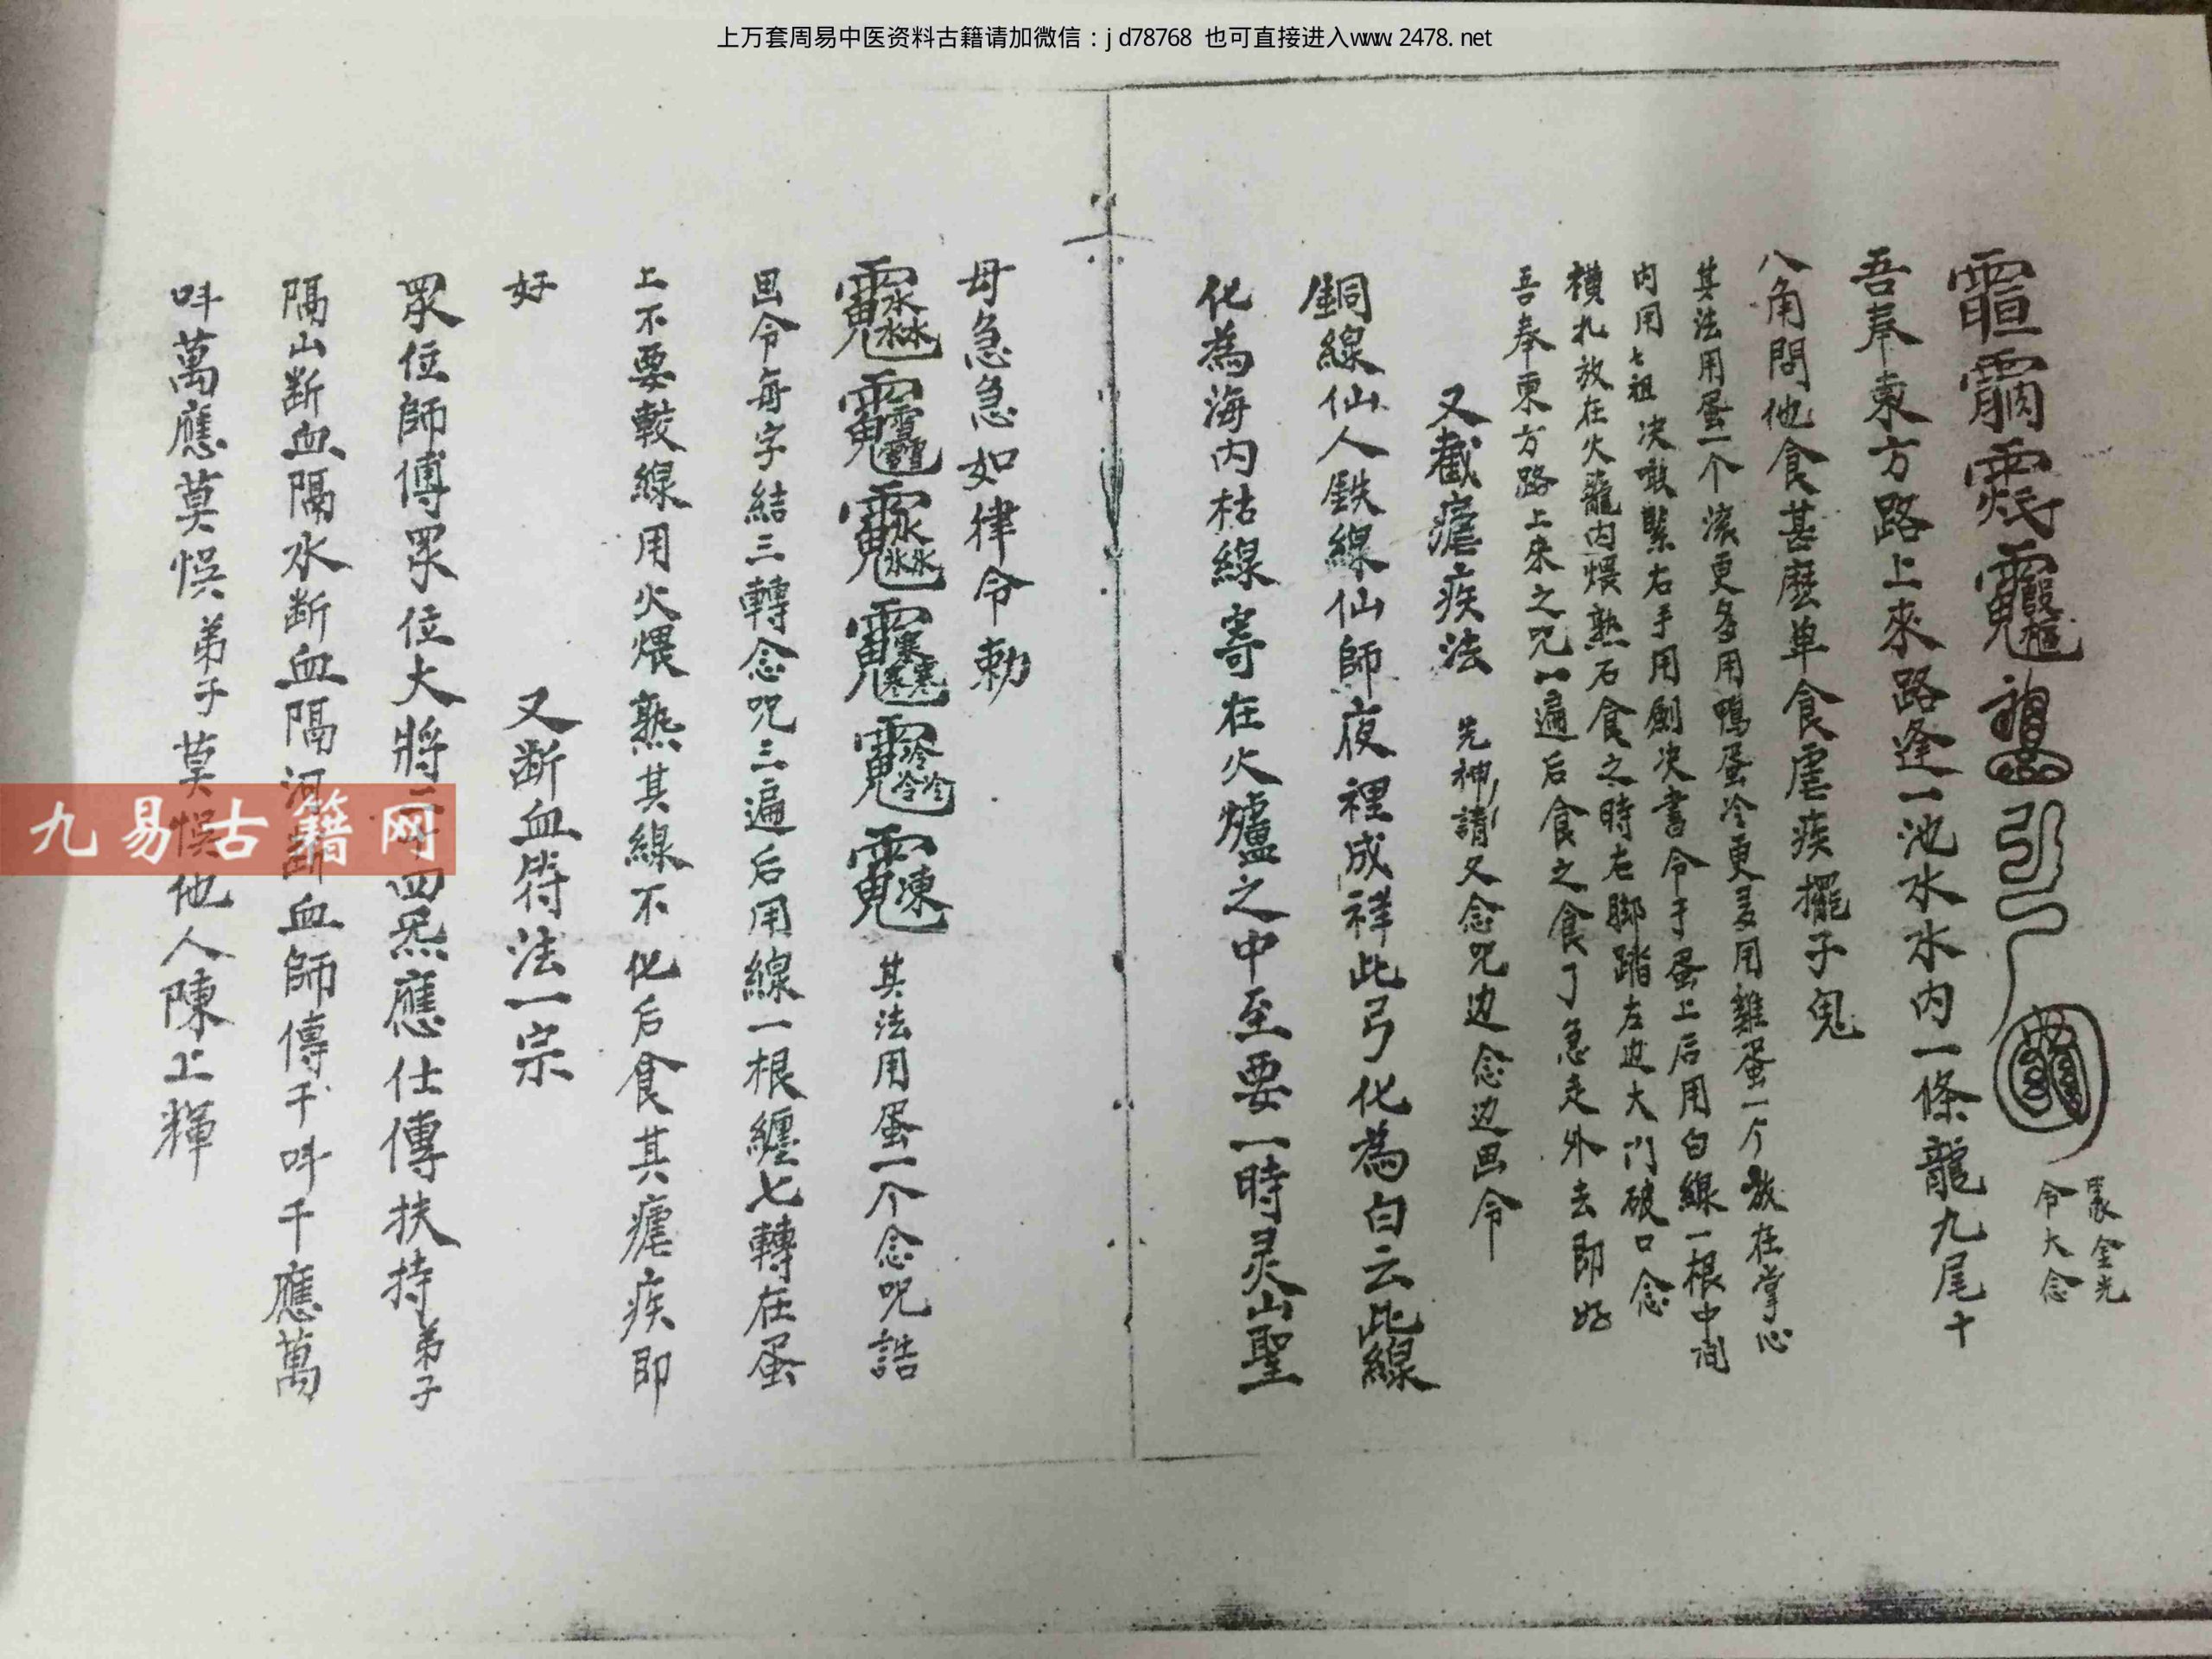 上万套周易中医资料古籍请加微信：jd78768 也可直接进入www.2478.net
金光
令大念
吾奉東方路上來路逢一池水水内一條龍九尾十
八角問他食甚麽单食虐疾擺子鬼
其法用蛋一个滚更多用鴨蛋冷更多用雞蛋一个放在掌心
内用七祖决啣緊右手用劍决書令于蛋上后用白線一根中间
横扎放在火籠内煨熟后食之時右脚踏左边大门破口念
吾奉東方路上来之咒一遍后食之食了急走外去即好
又截瘧疾法 先神請又念咒边念边画令
銅線仙人鉄線仙師夜裡成祥此弓化為白云此線
化為海内枯線寄在火爐之中至要一時灵山聖
母急急如律令勅
其法用蛋一个念咒誥
画令每字結三轉念咒三遍后用線一根纏七轉在蛋
上不要較線用火煨熟其線不化后食其瘧疾即
好
又断血符法一宗
眾位師傅眾位大將四炁應仕傳扶持弟子
隔山断血隔水断血隔河断血師傳千呌千應萬
呌萬應莫悞弟子莫悞他人陳上輝
九易古籍网